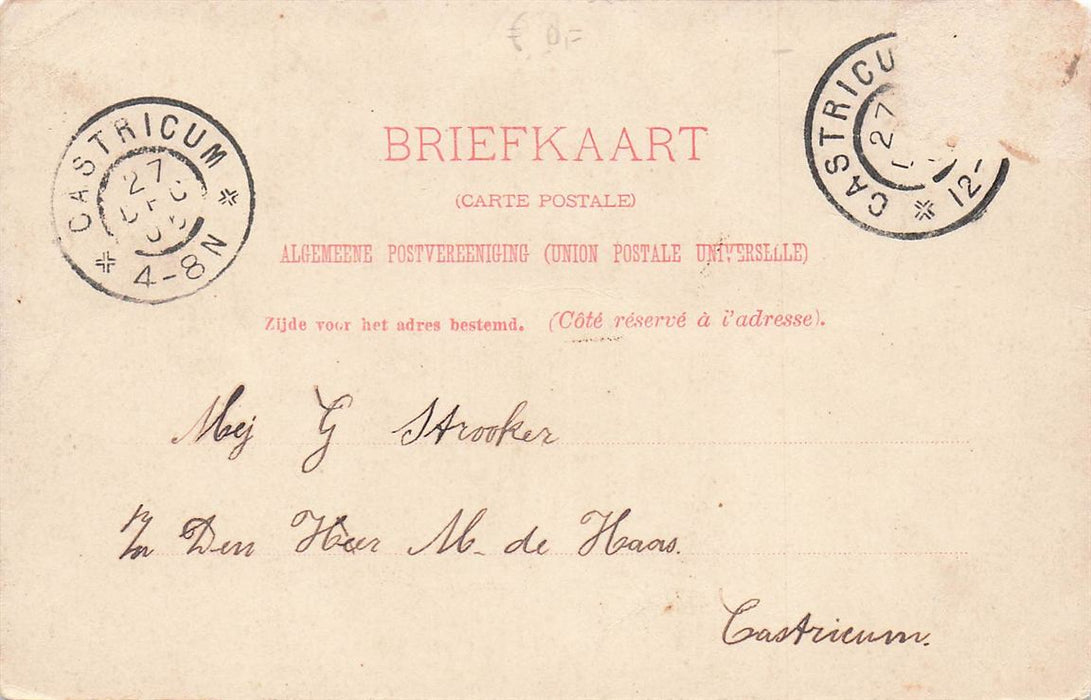 € 8,=
CASTRICUM
27
4-8N
CASTRICU
27
12-
BRIEFKAART
(CARTE POSTALE)
ALGEMEENE POSTVEREENIGING (UNION POSTALE UNIVERSELLE)
Zijde voor het adres bestemd. (Côté réservé à l'adresse).
Mej G Strooker
Den Heer M. de Haas.
Castricum.